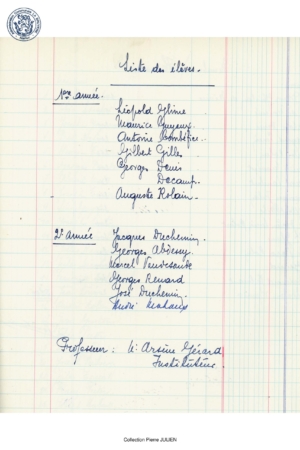 Liste des élèves.
1ère année.
Léopold Ghime
Maurice
Antoine
Gilbert Gilles
Georges Denis
Decamp.
Auguste Rolain.
2e année
Jacques Duchemin.
Georges
Marcel
Georges Renard
José Duchemin.
André
Professeur : Mr Arsène Gérard
Instituteur.
Collection Pierre JULIEN